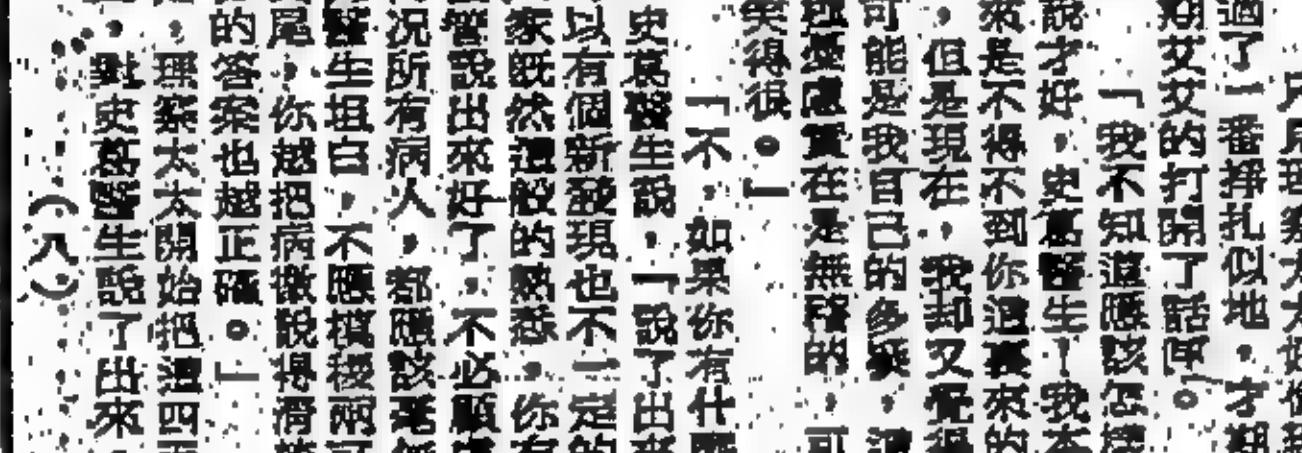 過了一番掙扎似地，才期
期艾艾的打開了話匣。
「我不知道應該怎樣
說才好，史葛醫生！我本
來是不得不到你這裏來的
，但是現在，我却又覺得
可能是我自己的多疑，
憂慮實在是無謂的，可
笑得很。」
「不，如果你有什麼
史葛醫生說，「說了出來
以有個新發現也不一定的
家既然這般的熟悉，你有
管說出來好了，不必顧
况所有病人，都應該毫無
醫生坦白，不應模稜兩可
尾，你越把病徵說得清楚
的答案也越正確。」
理察太太開始把這四
，對史葛醫生說了出來，
（八）